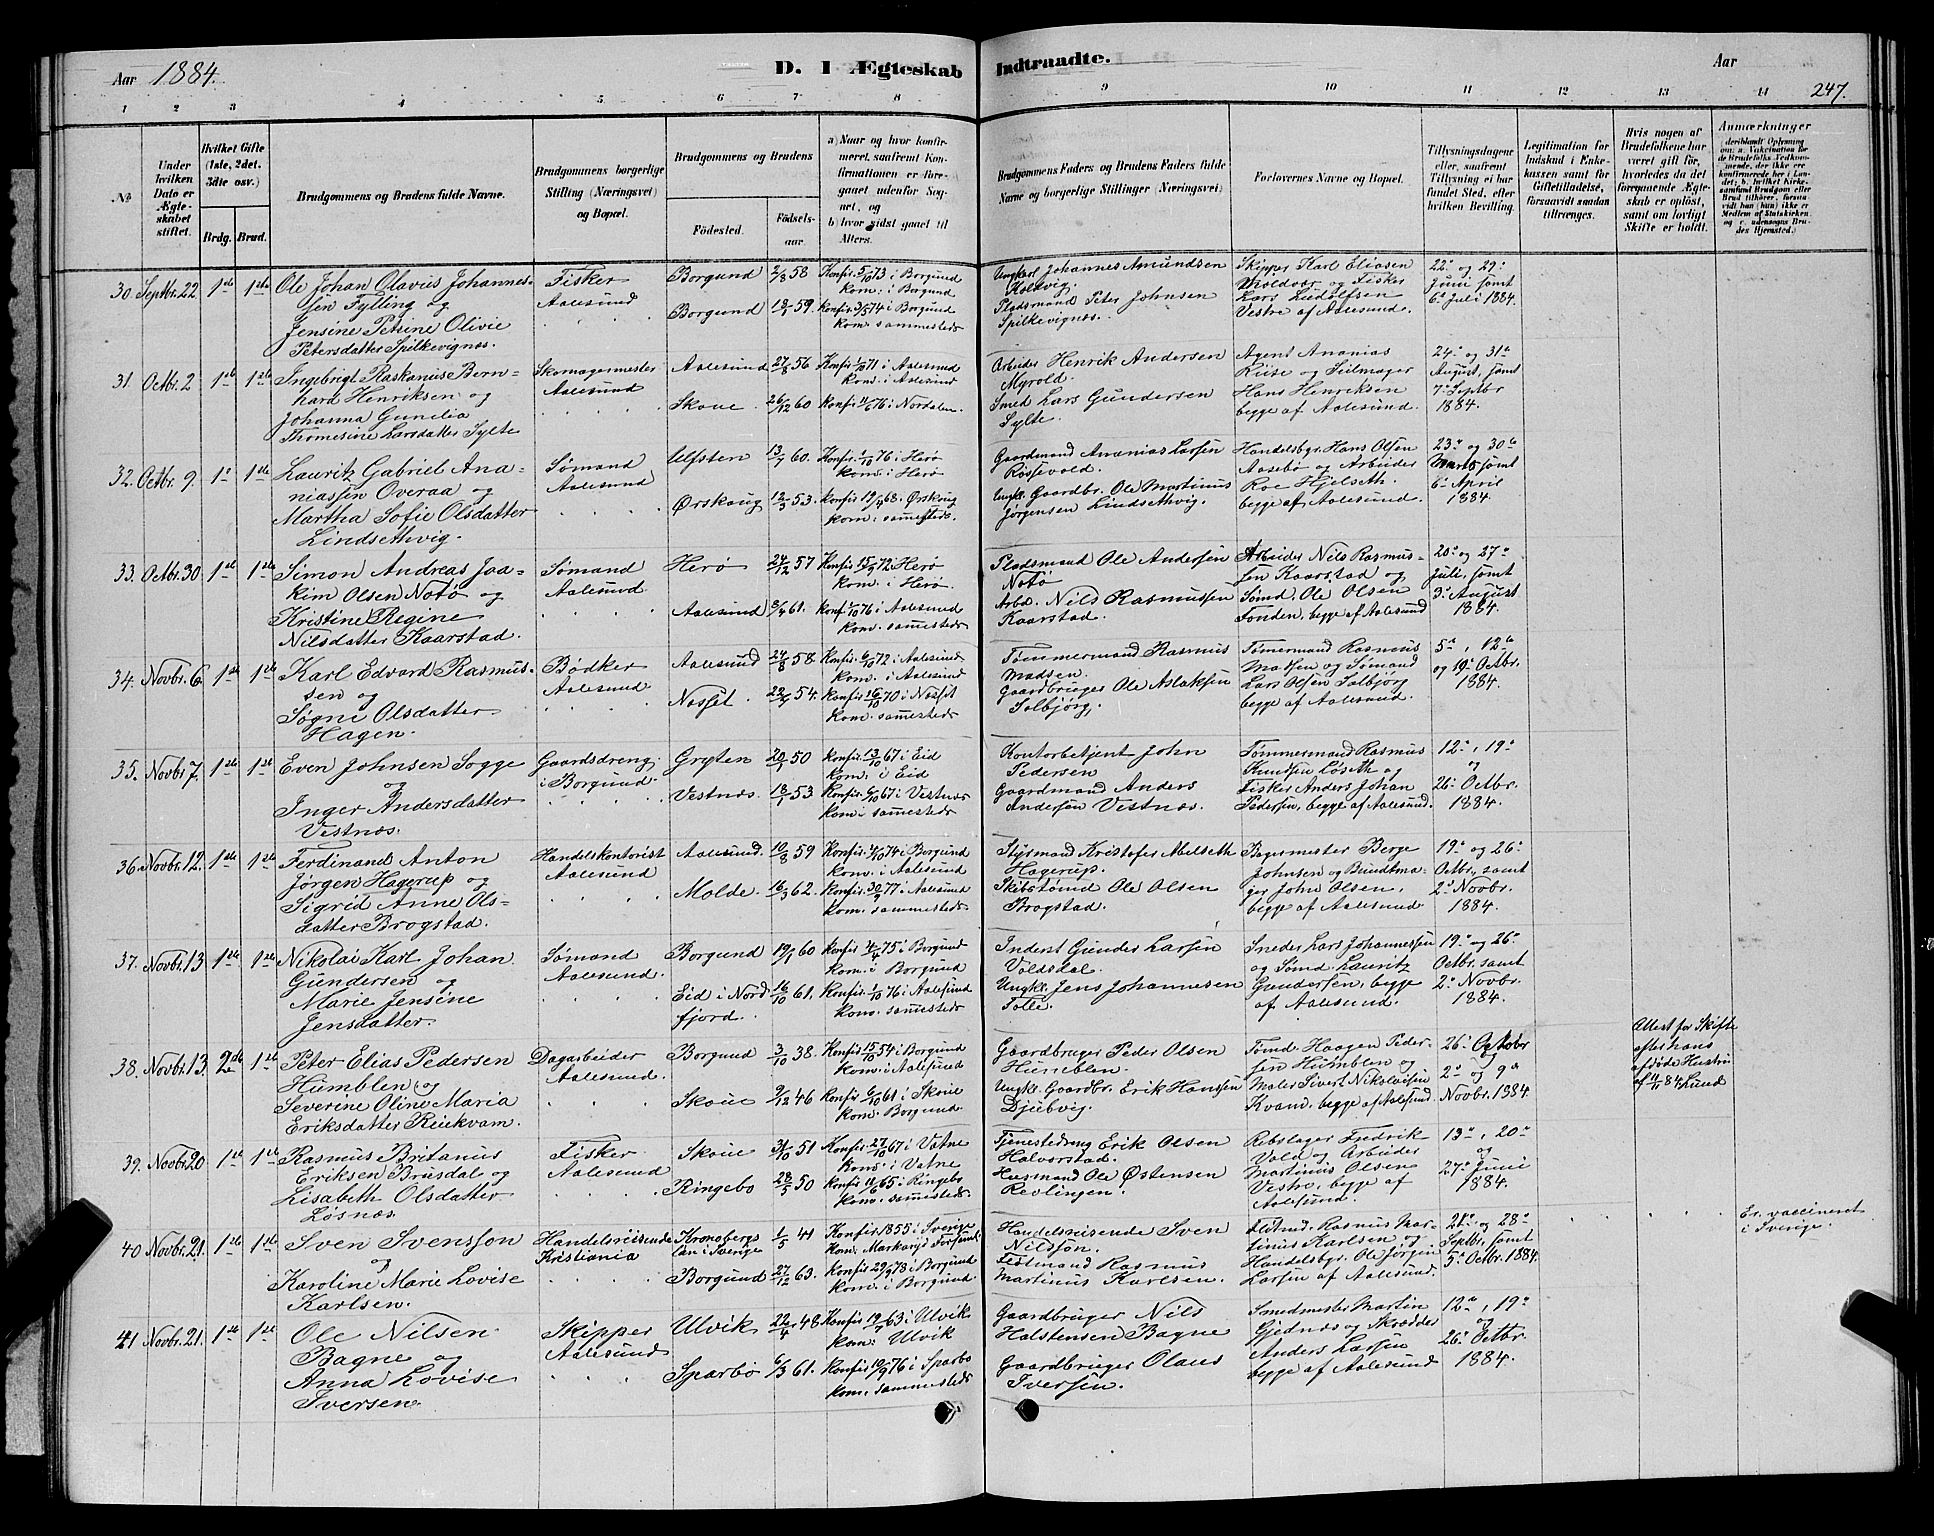 Aar 1884.
D. I Ægteskab Indtraadte.
Aar
247.
1 2 3 4 5 6 7 8 9 10 11 12 13 14
No.
Under hvilken Dato er Ægteskabet stiftet.
Hvilket Gifte (1ste, 2det, 3dte osv.)
Brdg. Brud.
Brudgommens og Brudens fulde Navne.
Brudgommens borgerlige Stilling (Næringsvei) og Bopæl.
Brudgommens og Brudens
Fødested.
Fødselsaar.
a) Naar og hvor konfirmeret, saafremt Konfirmationen er foregaaet udenfor Sognet, og
b) hvor sidst gaaet til Alters.
Brudgommens Faders og Brudens Faders fulde Navne og borgerlige Stillinger (Næringsvei)
Forlovernes Navne og Bopæl.
Tillysningsdagene eller, saafremt Tillysning ei har fundet Sted, efter hvilken Bevilling.
Legitimation for Indskud i Enkekassen samt for Giftetilladelse, forsaavidt saadan tiltrænges.
Hvis nogen af Brudefolkene har været gift før, hvorledes da det foregaaende Ægteskab er opløst, samt om lovligt Skifte er holdt.
Anmærkninger
30. Septbr. 22 1ste 1ste
Ole Johan Olavus Johannes-
sen Fylling og
Jensine Petrine Olivie
Petersdatter Spilkevignæs.
Fisker
Aalesund
Borgund 2/8 58
Borgund 18/1 59.
Konfir. 5/10 73 i Borgund
kom: i Borgund
Konfir. 3/5 74 i Borgund
kom. sammesteds
Ungkarl Johannes Amundsen
Holtvig.
Pladsmand Peter Johnsen
Spilkevignæs.
Skipper Karl Eliasen
Moldvær og Fisker
Lars Ludolfsen
Vestre af Aalesund.
22de og 29de
Juni samt
6te Juli 1884.
31. Octbr. 2 1ste 1ste
Ingebrigt Raskanus Bern-
hard Henriksen og
Johanna Gunelia
Thomesine Larsdatter Sylte
Skomagermester
Aalesund
Aalesund 27/8 56
Skoue 26/12 60
Konfir. 1/10 71 i Aalesund
kom. i Aalesund
Konfir. 11/6 76 i Nordalen.
Arbeider Henrik Andersen
Myrold.
Smed Lars Gundersen
Sylte.
Agent Ananias
Riise og Seilmager
Hans Henriksen
begge af Aalesund.
24de og 31te
August, samt
7de Septbr
1884.
32. Octbr. 9. 1s 1ste
Lauritz Gabriel Ana-
niassen Overaa og
Martha Sofie Olsdatter
Lindsethvig.
Sømand
Aalesund
Ulfsten 13/7 60.
Ørskoug 12/3 53.
Konfir. 1/10 76 i Herö
kom. i Herö
Konfir. 19/4 68. Ørskoug
kom: samesteds.
Gaardmand Ananias Larsen
Røsevold.
Ungk. Gaardbr. Ole Martinus
Jørgensen Lindsethvig.
Handelsbgr. Hans Olsen
Aasebø og Arbeider
Roe Hjelseth.
begge af Aalesund.
23de og 30te
Marts, samt
6te April
1884.
33. Octbr. 30 1ste 1ste
Simon Andreas Joa-
kim Olsen Notø og
Kristine Regine
Nilsdatter Kaarstad.
Sømand
Aalesund
Herø 24/12 57
Aalesund 8/4 61.
Konfir. 15/9 72 Herø
kom. i Herø
Konf. 1/10 76 i Aalesund
kom. samesteds
Pladsmand Ole Andersen
Notø
Arbr. Nils Rasmussen
Kaarstad.
Arbeider Nils Rasmus-
sen Kaarstad og
Sømd. Ole Olsen
Fonden, begge af Aalesund
20de og 27de
Juli, samt
3die August
1884.
34. Novbr. 6. 1ste 1ste
Karl Edvard Rasmus-
sen og
Søgni Olsdatter
Hagen.
Bødker
Aalesund
Aalesund 24/8 58
Nosset. 22/5 54.
Konfir. 6/10 72 i Aalesund
kom. i Aalesund
Konfir. 16/10 70 i Nosset
kom. samesteds
Tømmermand Rasmus
Madsen.
Gaardbruger Ole Aslaksen
Solbjørg.
Tømermand Rasmus
Madsen og Sømand
Lars Olsen Solbjørg
begge af Aalesund.
5te, 12te
og 19de Octbr.
1884.
35. Novbr. 7. 1ste 1ste
Even Johnsen Sogge
og
Inger Andersdatter
Vestnæs.
Gaardsdreng
i Borgund
Grytten 20/1 50
Vestnæs. 18/1 53.
Konfir. 13/10 67 i Eid
kom. i Eid
Konfir. 6/10 67 i Vestnæs
kom. i samesteds
Kontorbetjent John
Pedersen
Gaardmand Anders
Andersen Vestnæs.
Tømmermand Rasmus
Knudsen Løseth og
Fisker Anders Johan
Pedersen, begge af Aalesund.
12te, 19de
og
26de Octbr.
1884.
36. Novbr. 12. 1ste 1ste
Ferdinand Anton
Jørgen Hagerup og
Sigrid Anne Ols-
datter Brogstad.
Handelskontorist
Aalesund
Aalesund. 10/8 59
Molde. 16/3 62.
Konfir. 4/10 74 i Borgund
kom. i Aalesund
Konfir. 30/9 77 i Aalesund
kom. sammesteds
Styrmand Kristofer Melseth
Hagerup.
Skibstømd Ole Olsen
Brogstad.
Bagermester Berge
Johnsen og Bundtma-
ger John Olsen,
begge af Aalesund
19de og 26de
Octbr., samt
2den Novbr.
1884.
37. Novbr. 13 1ste 1ste
Nikolai Karl Johan
Gundersen og
Marie Jensine
Jensdatter.
Sømand
Aalesund.
Borgund 19/1 60
Eid i Nord-
fjord. 16/10 61.
Konfir. 4/4 75 i Borgund
kom. i Borgund
Konfir. 1/10 76 i Aalesund
kom. samesteds
Inderst Gunder Larsen
Voldsdal.
Ungk. Jens Johannesen
Tolle.
Snedker Lars Johannessen
og Sømd. Lauritz
Gundersen, begge
af Aalesund.
19de og 26de
Octbr. samt
2den Novbr.
1884.
38. Novbr. 13. 2den 1ste
Peter Elias Pedersen
Humblen og
Severine Oline Maria
Eriksdatter Reiekvam.
Dagarbeider
Aalesund.
Borgund 3/10 38.
Skoue 9/12 46
Konfir. 15/10 54 i Borgund
kom. i Aalesund
Konfir. 6/10 61 i Skoue
kom. Borgund
Gaardbruger Peder Olsen
Humblen.
Ungk. Gaardbr. Erik Hansen
Djubvig.
Tømd. Haagen Peder-
sen Humblen og
Maler Sivert Nikolaisen
Kvand, begge af Aalesund
26de October
og
2den og 9de
Novbr. 1884.
Attest for Skifte
efter hans
afdøde Hustru
af 11/11 84 Lund
39. Novbr. 20 1ste 1ste
Rasmus Britanus
Eriksen Brusdal og
Lisabeth Olsdatter
Løsnæs.
Fisker
Aalesund
Skoue 31/10 51
Ringebo 28/5 50
Konfir. 27/10 67 i Vatne
kom. i Vatne
Konfir. 11/6 65 i Ringebo
kom. samesteds
Tjenestedreng Erik Olsen
Halvorstad.
Husmand Ole Østensen
Revlingen.
Rebslager Fredrik
Vold og Arbeider
Martinus Olsen
Vestre, begge af
Aalesund.
13de, 20de
og
27de Juni
1884.
40 Novbr. 21. 1ste 1ste
Sven Svensson
og
Karoline Marie Lovise
Karlsen.
Handelsreisende
Kristiania
Kronobergs
Län i Sverige 1/5 41
Borgund 27/12 63.
Konfir. 1855 i Sverige
kom. Markaryd Forsaml.
Konfir. 29/9 78 i Borgund
kom. i Borgund
Handelsreisende Sven
Nilsson.
Feldmand Rasmus
Martinus Karlsen.
Rasmus Mar-
tinus Karlsen og
Handelsbgr. Ole Jørgen
Larsen af Aalesund.
21de og 28de
Septbr. samt
5te Octbr. 1884.
Er vaccineret
i Sverige.
41 Novbr. 21. 1ste 1ste
Ole Nilsen
Bagne og
Anna Lovise
Iversen.
Skipper
Aalesund
Ulvik 22/4 48
Sparbo 6/3 61.
Konfir. 19/7 63 i Ulvik
kom. Ulvik
Konfir. 10/9 76 i Sparbo
kom. sammesteds
Gaardbruger Nils
Halstensen Bagne
Gaardbruger Olaus
Iversen.
Smedmester Martin
Gjednæs og Skrædder
Anders Larsen
begge af Aalesund
12te, 19de
og
26de Octbr.
1884.